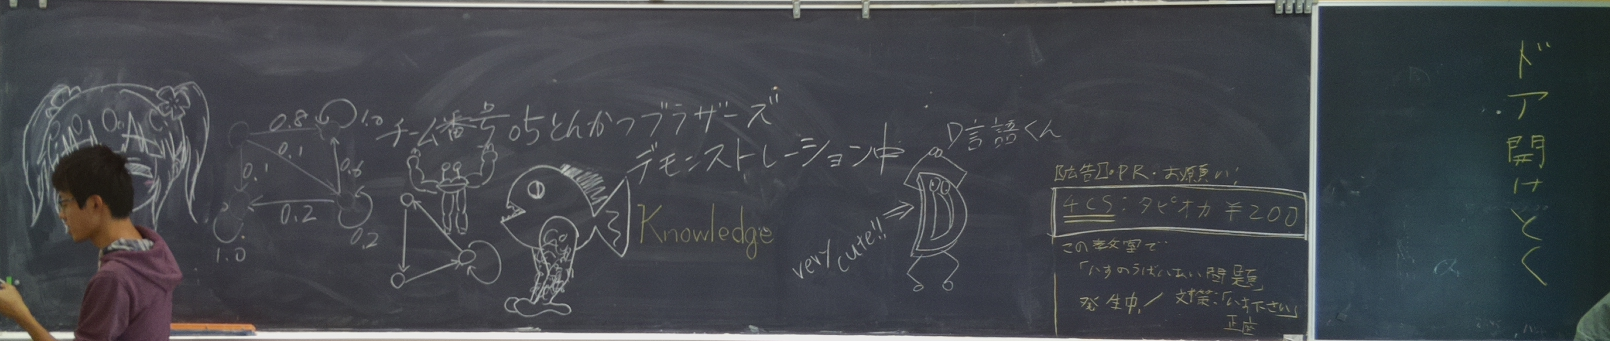 0.8
1.0
0.1
0.1
0.6
0.2
0.2
1.0
チーム番号05とんかつブラザーズ
デモンストレーション中
Knowledge
D言語くん
very cute!!
【広告】・PR・お願い!
4CS:タピオカ ¥200
この教室で
「いすのうばいあい問題」
発生中!
対策:「いす下さい」
正座
ドア開けとく
α